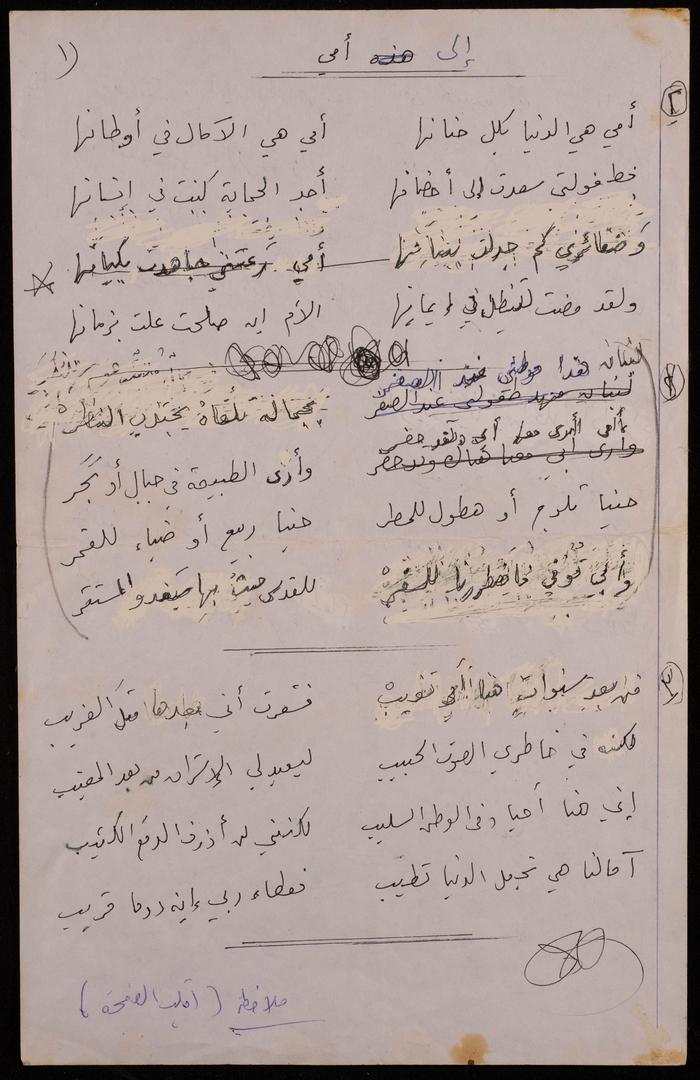 (١
إلى هذه أمي
٢
أمي هي الدنيا بكل حنانها أمي هي الآمال في أوطانها
فطفولتي سعدت إلى أحضانها أجد الحماية كنت في إنسانها
وضفائري كم جدلت ببنانها أمي رعتني جاهدت بكيانها
ولقد مضت لتظل في إيمانها الأم إن صلحت علت بزمانها
لبنان هذا موطني الصغر
٢
لبنان مهد طفولتي عند الصغر بجمالة تلقاه يجتذب النظر
أمي أبي ولقد حضر
وأرى أبي معنا هناك وقد حضر وأرى الطبيعة في جبال أو بحر
حينا ثلوج أو هطول للمطر حينا ربيع أو ضياء للقمر
وأبي توفي فاضطررنا للسفر للقدس حيث بها صفد والمستقر
٣
من بعد سنوات هنا أمي تغيب فشعرت أني بعدها مثل الغريب
لكنه في خاطري الصوت الحبيب ليعيد لي الإشراق من بعد المغيب
إني هنا أحيا وفي الوطن السليب لكنني لن أذرف الدمع الكئيب
آمالنا هي تجعل الدنيا تطيب فعطاء ربي إنه دوما قريب
ملاحظة (اقلب الصفحة)